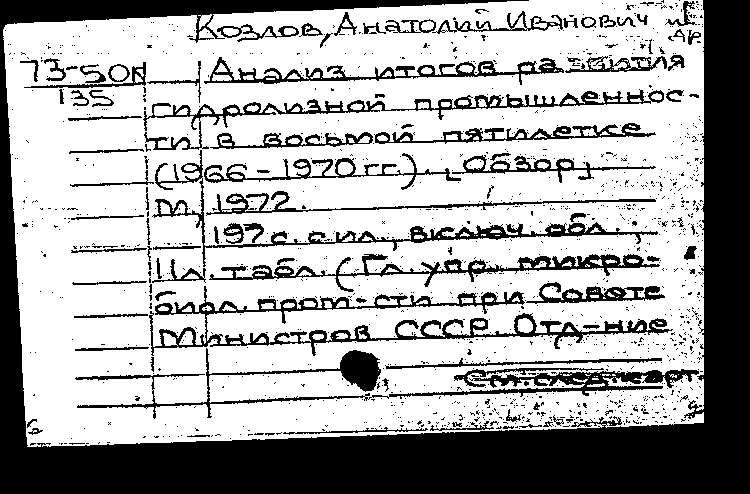 Козлов, Анатолий Иванович и др.
73-50К
135
Анализ итогов развития
гидролизной промышленнос-
ти в восьмой пятилетке
(1966 - 1970 гг.). [Обзор]
М., 1972.
197 с. с ил., включ. обл.;
11 л. табл. (Гл. упр. микро-
биол. пром-сти при Совете
Министров СССР. Отд-ние
См. след. карт.